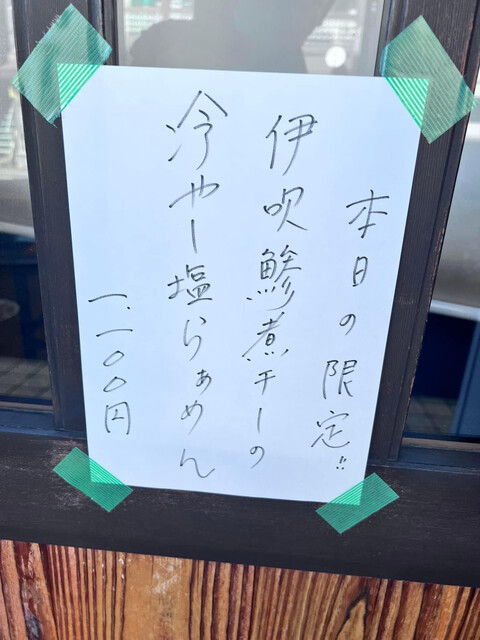 本日の限定!!
伊吹鯵煮干しの
冷やー塩らぁめん
一、一〇〇円